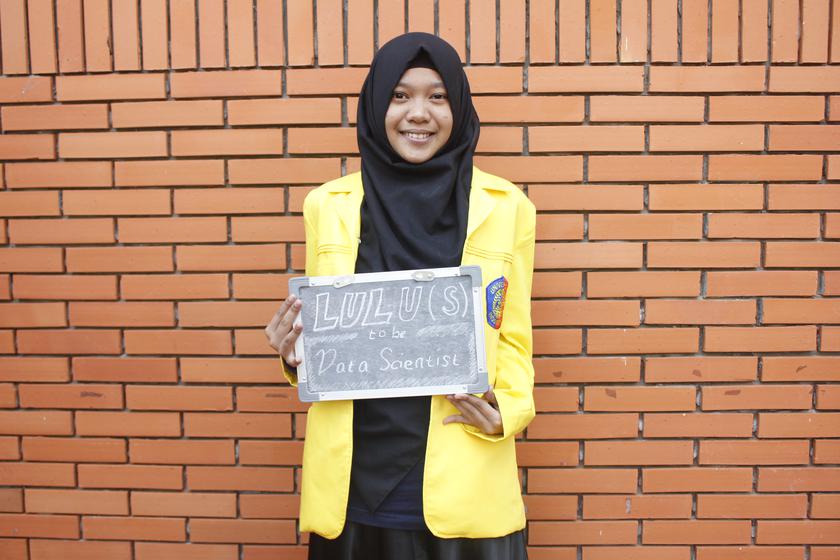 LULU(S)
to be
Data Scientist